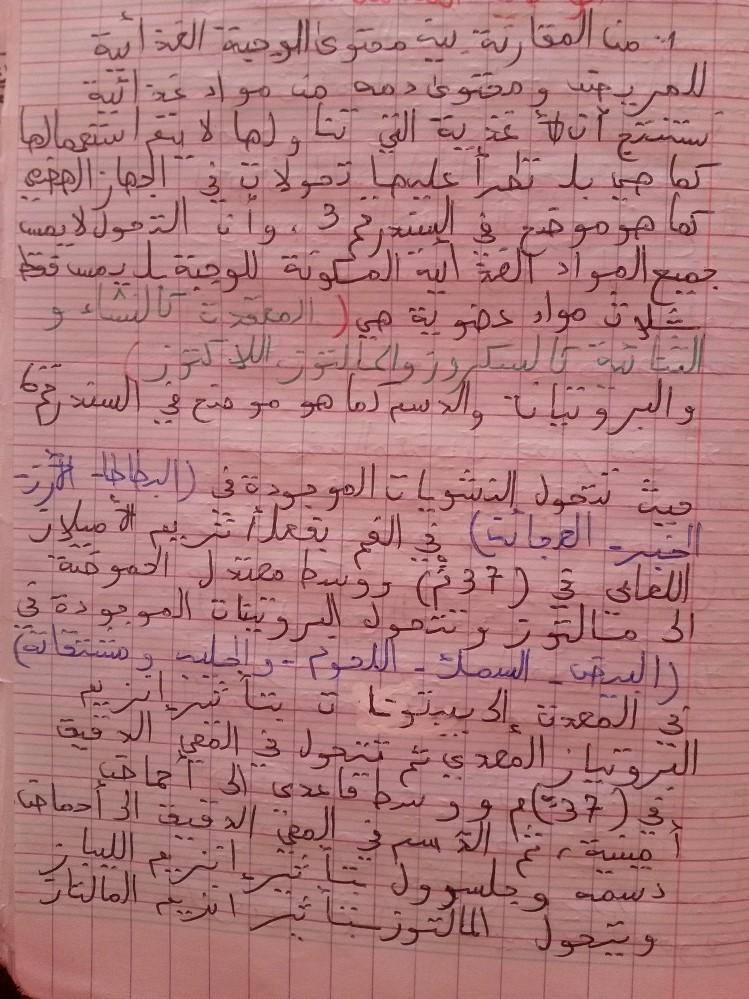 1. من المقارنة بين محتوى الوجبة الغذائية
للمريض ومحتوى دمه من مواد غذائية
نستنتج أن الأغذية التي تناولها لا يتم استعمالها
كما هي بل تطرأ عليها تحولات في الجهاز الهضمي
كما هو موضح في السند رقم 3، وأن التحول لا يمس
جميع المواد الغذائية المكونة للوجبة بل يمس فقط
ثلاث مواد عضوية هي (المعقدة كالنشاء و
الثنائية كالسكروز والمالتوز اللاكتوز)
والبروتينات والدسم كما هو موضح في السند رقم 6
حيث تتحول النشويات الموجودة في (البطاطا - الأرز -
الخبز - العجائن) في الفم بفعل أنزيم الأميلاز
اللعابي في (37°م) ووسط معتدل الحموضة
الى مالتوز وتتحول البروتينات الموجودة في
(البيض - السمك - اللحوم - والحليب ومشتقاته)
في المعدة إلى ببتونات بتأثير إنزيم
البروتياز المعدي ثم تتحول في المعي الدقيق
في (37°)م ووسط قاعدي الى أحماض
أمينية، ثم الدسم في المعي الدقيق الى أحماض
دسمة وجلسرول بتأثير إنزيم الليباز
ويتحول المالتوز بتأثير انزيم المالتاز